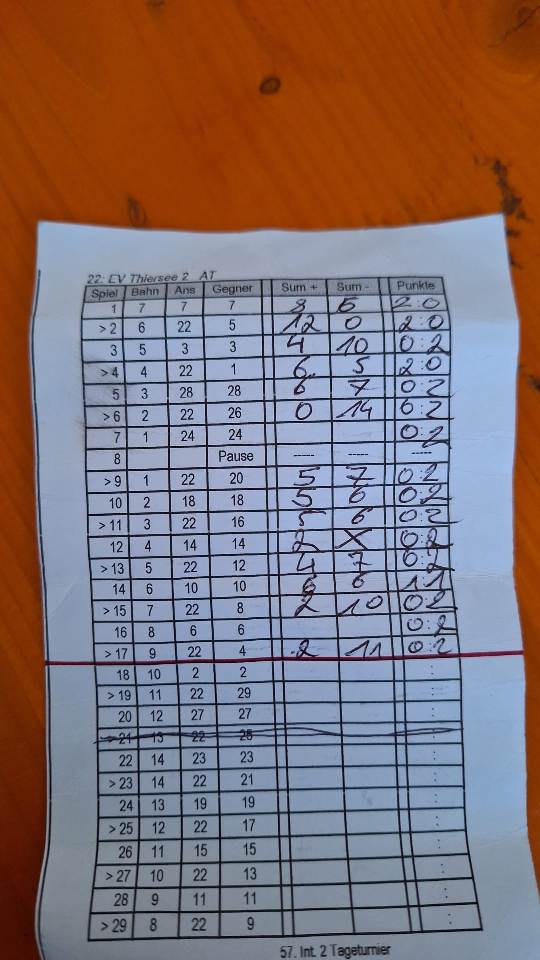 22: EV Thiersee 2 AT
Spiel Bahn Ans Gegner Sum + Sum - Punkte
1 7 7 7 8 6 2:0
> 2 6 22 5 12 0 2:0
3 5 3 3 4 10 0:2
> 4 4 22 1 6 5 2:0
5 3 28 28 6 7 0:2
> 6 2 22 26 0 14 0:2
7 1 24 24 0:2
8 Pause ----- ----- -----
> 9 1 22 20 5 7 0:2
10 2 18 18 5 6 0:2
> 11 3 22 16 5 6 0:2
12 4 14 14 2 X 0:2
> 13 5 22 12 4 7 0:2
14 6 10 10 6 6 1:1
> 15 7 22 8 2 10 0:2
16 8 6 6 0:2
> 17 9 22 4 2 11 0:2
18 10 2 2 :
> 19 11 22 29 :
20 12 27 27 :
> 21 13 22 25 :
22 14 23 23 :
> 23 14 22 21 :
24 13 19 19 :
> 25 12 22 17 :
26 11 15 15 :
> 27 10 22 13 :
28 9 11 11 :
> 29 8 22 9 :
57. Int. 2 Tageturnier